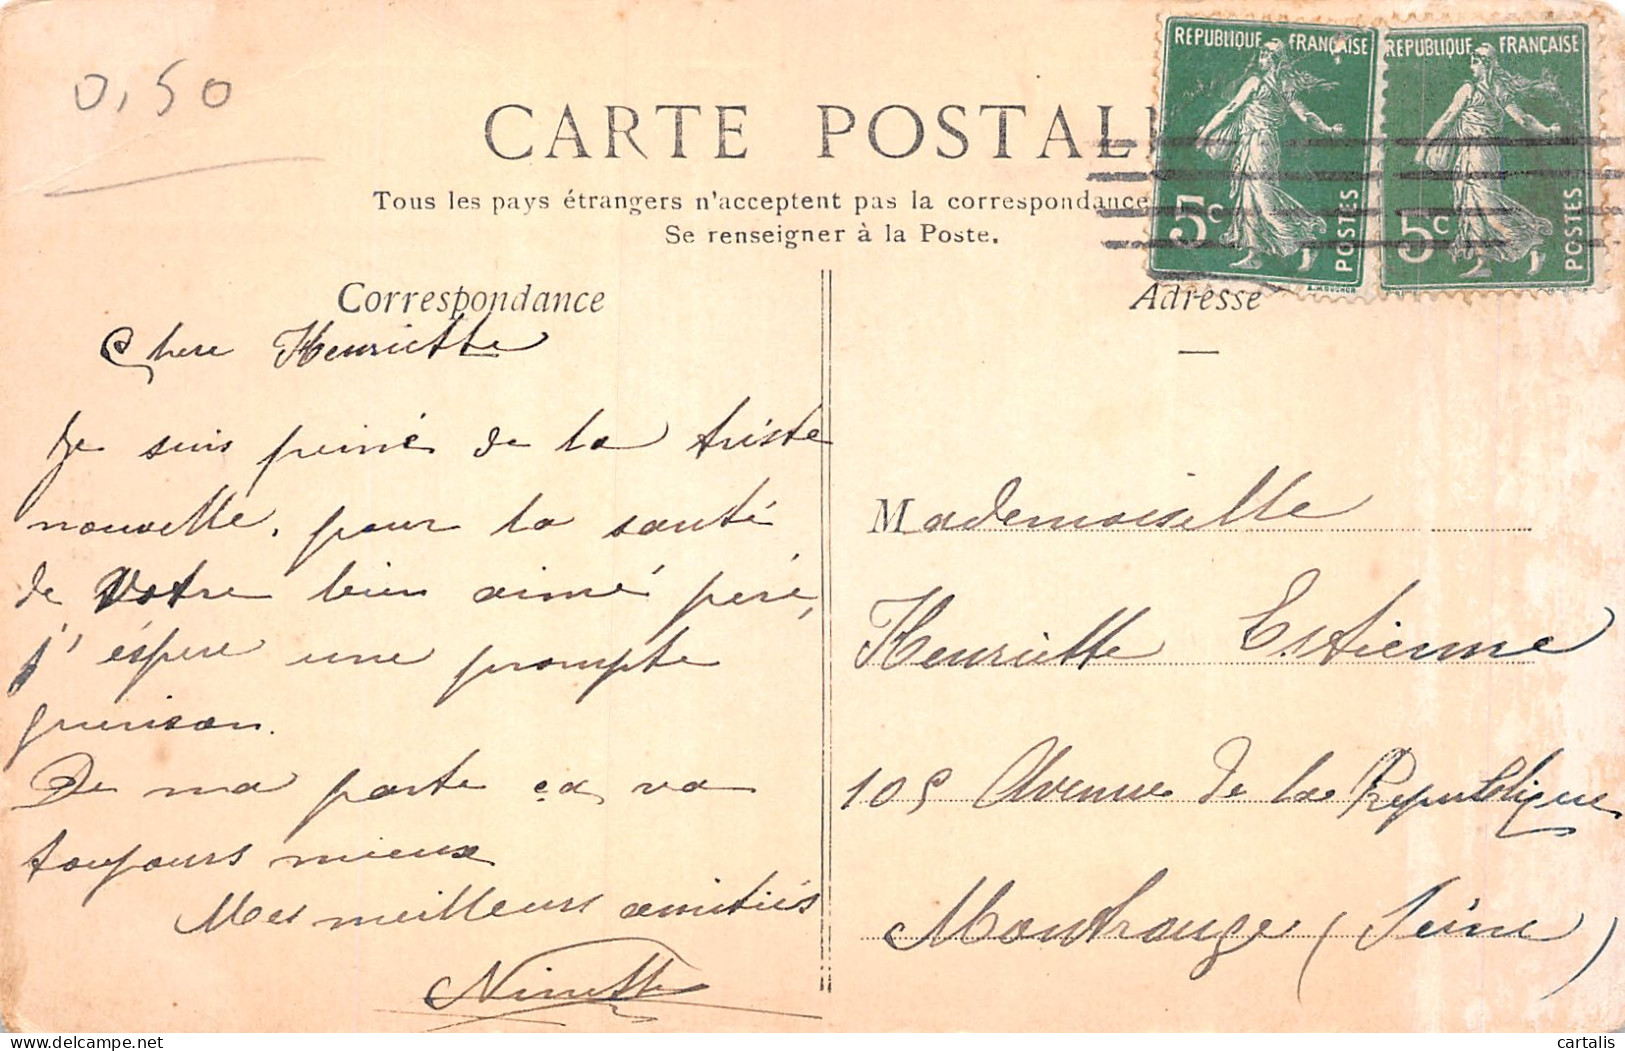 0,50
CARTE POSTAL
Tous les pays étrangers n'acceptent pas la correspondance
Se renseigner à la Poste.
REPUBLIQUE FRANÇAISE
5c
POSTES
REPUBLIQUE FRANÇAISE
5c
POSTES
Correspondance
Chere Henriette
Je suis peiné de la triste
nouvelle, pour la santé
de Votre bien aimé péré,
j'éspere une prompte
guerison.
De ma parte ça va
toujours mieux
Mes meilleurs amitiés
Ninette
Adresse
Mademoiselle
Henriette Estienne
105 Avenue de la Republique
Montrouge (Seine)
cartalis
delcampe.net